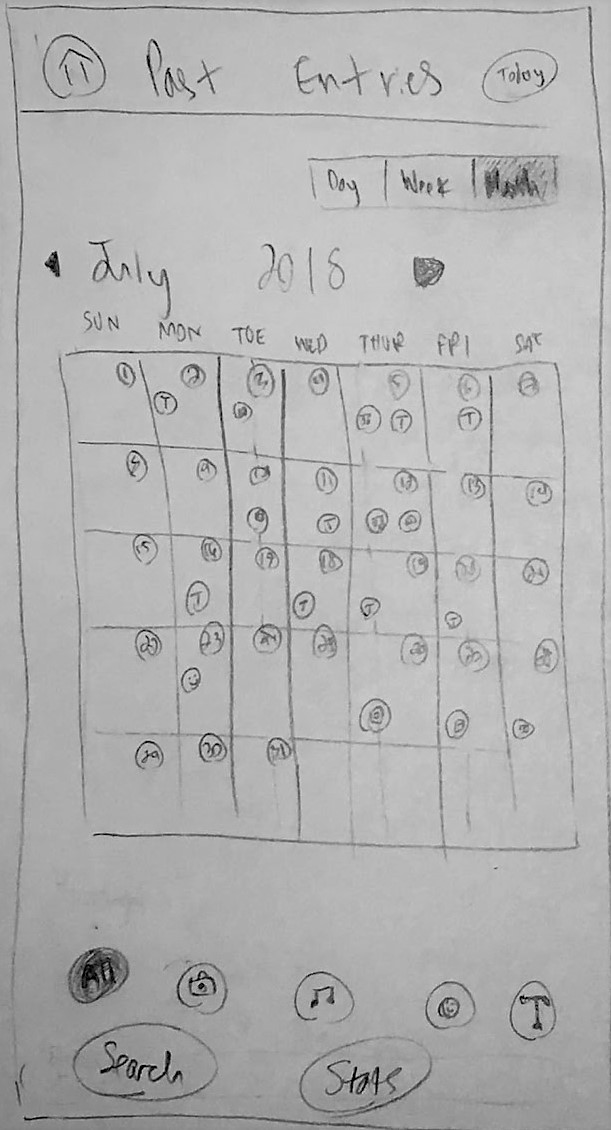 Past Entries Today
Day Week Month
July 2018
SUN MON TUE WED THUR FRI SAT
1 2 3 4 5 6 7
T T T
8 9 10 11 12 13 14
T
15 16 17 18 19 20 21
T T T T
22 23 24 25 26 27 28
29 30 31
All T
Search Stats